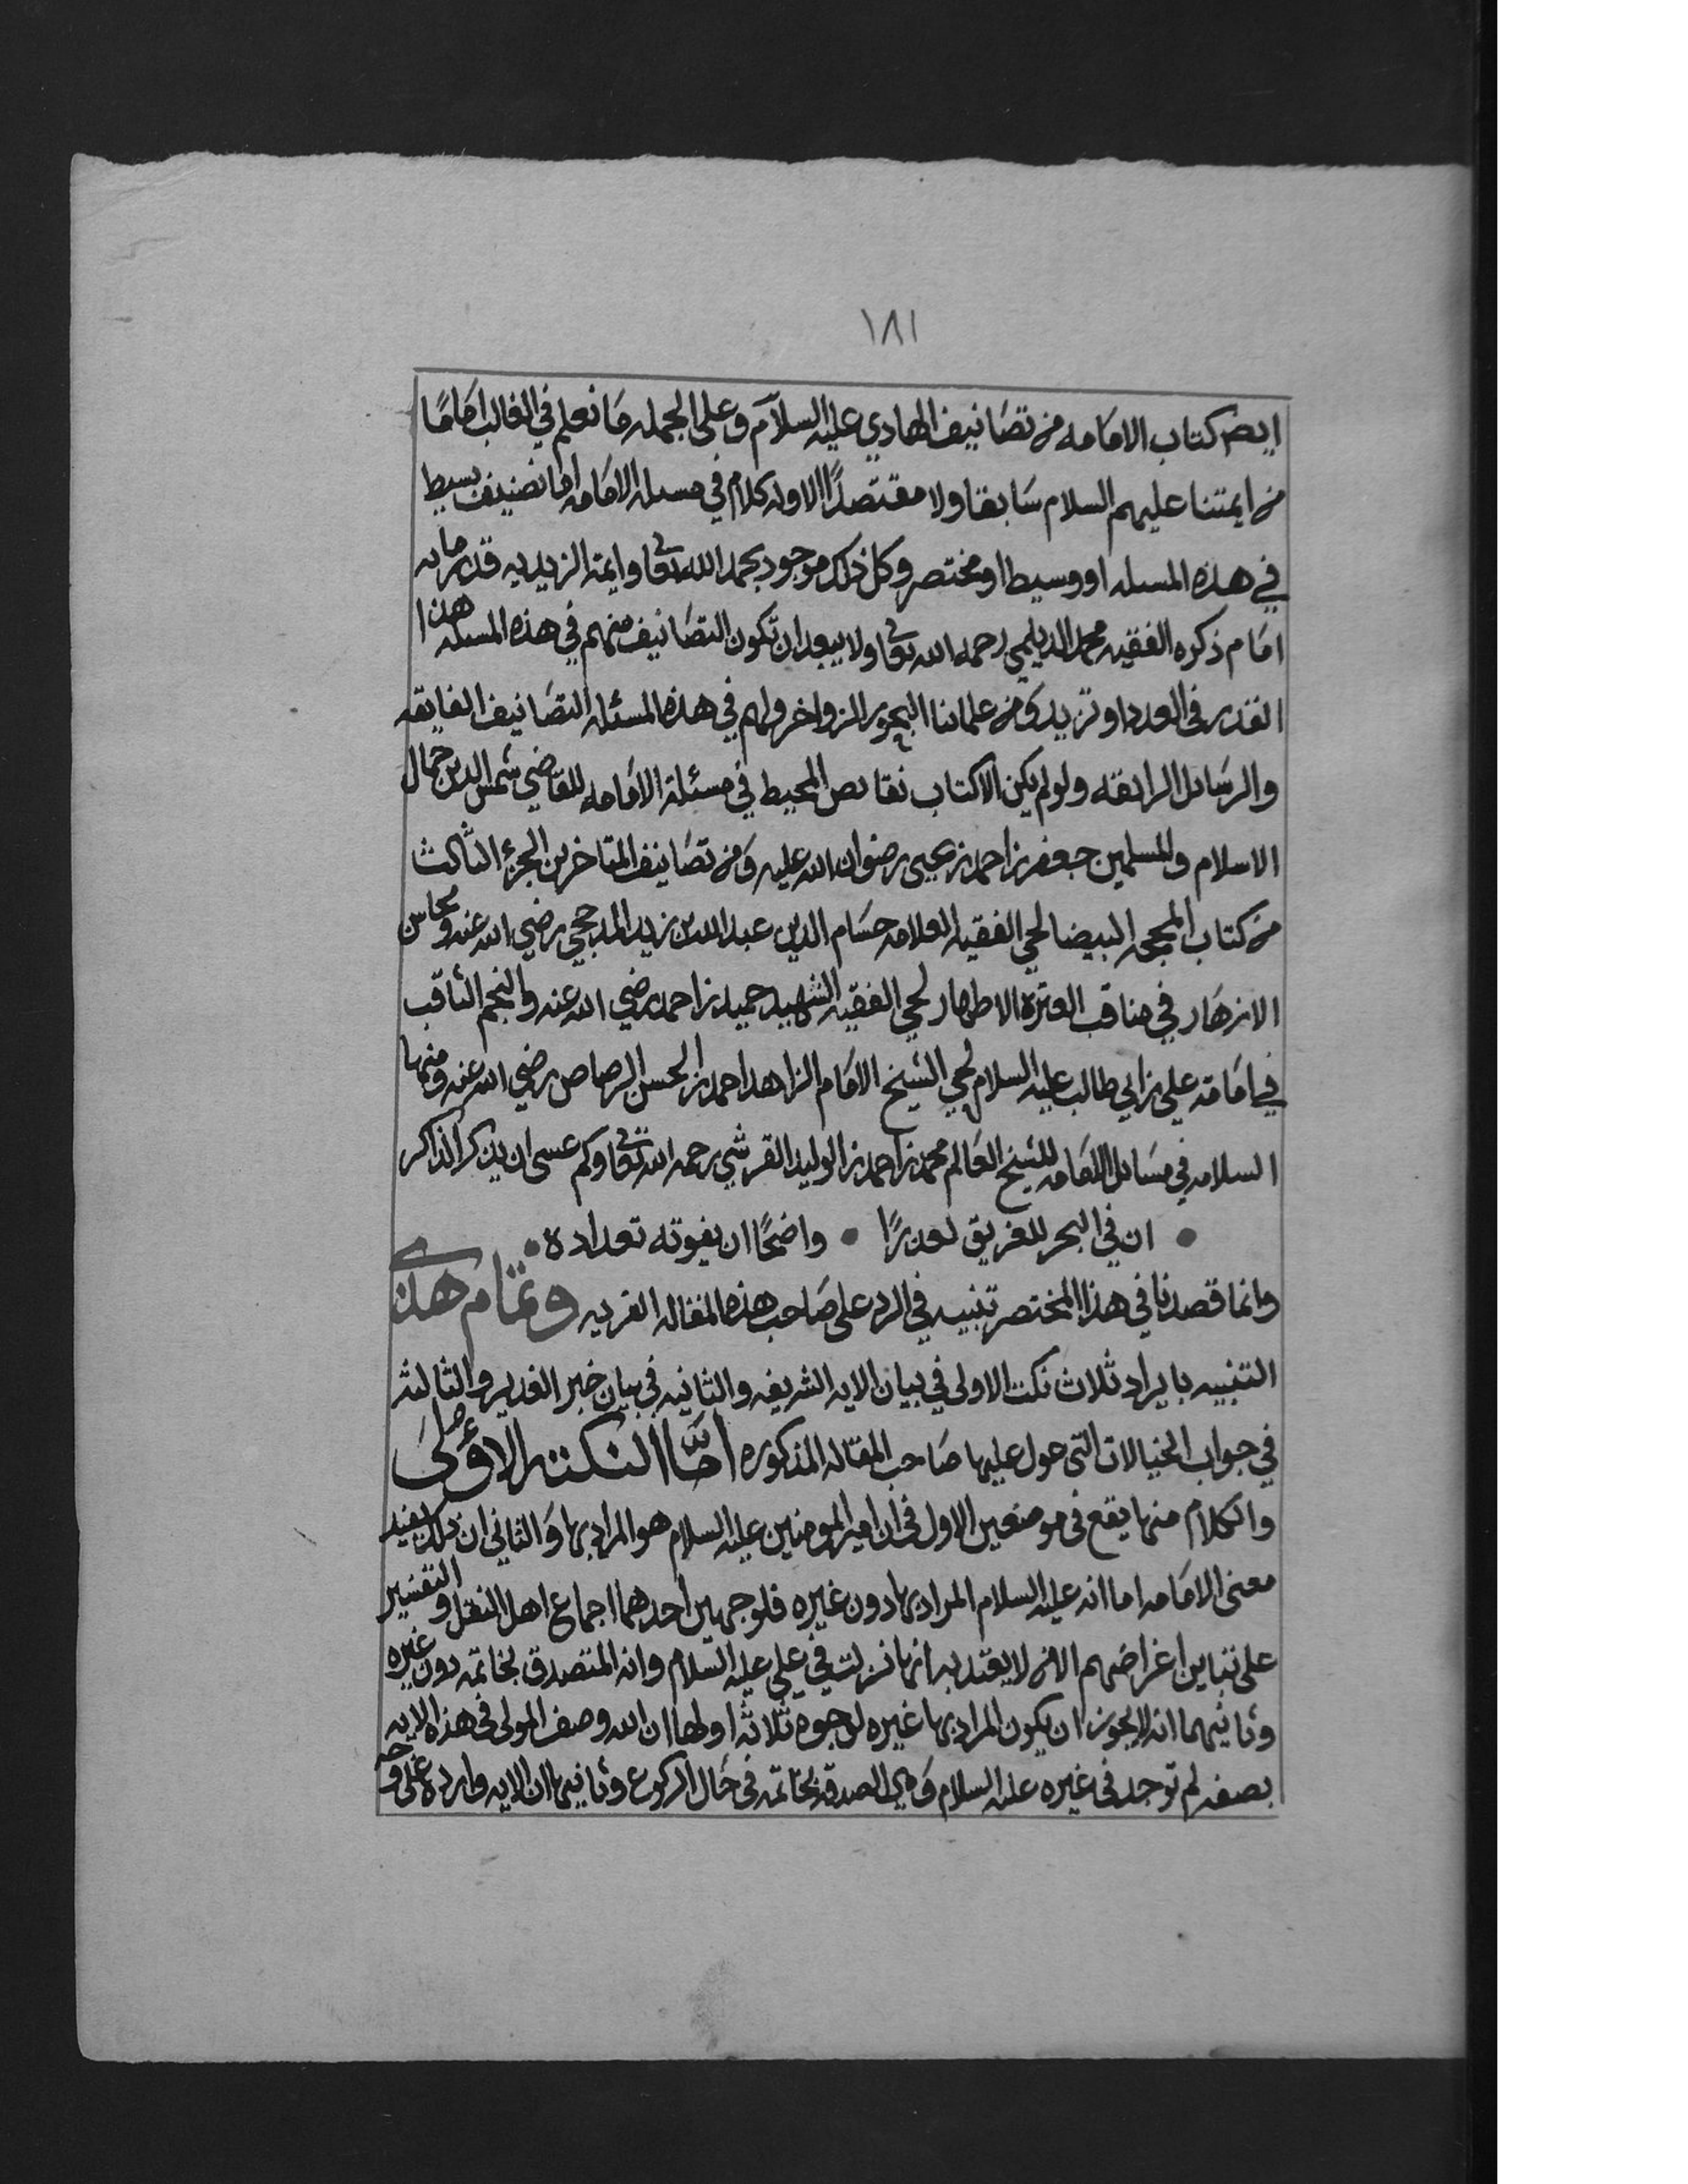 ١٨١
ايضا كتاب الامامه من تصانيف الهادي عليه السلام وعلى الجمله ما نعلم في الغالب اماما
من ايمتنا عليهم السلام سابقا ولا مقتصدا الا وله كلام في مسله الامامه اما تصنيف بسيط
في هذه المسله او وسيط او مختصر وكل ذلك موجود بحمد الله تعا وايمة الزيديه قدر مايه
امام ذكره الفقيه محمد الديلمي رحمه الله تعا ولا يبعد ان تكون التصانيف منهم في هذه المسله هذا
القدر في العدد او تزيد ومن علمائنا البحور الزواخر ولهم في هذه المسئله التصانيف الفايقه
والرسائل الرائقه ولو لم يكن الا كتاب نقايص المحيط في مسئلة الامامه للقاضي شمس الدين جمال
الاسلام والمسلمين جعفر بن احمد بن يحيى رضوان الله عليه ومن تصانيف المتاخرين الجزء الثالث
من كتاب المحجه البيضا لحي الفقيه العلامه حسام الدين عبد الله بن زيد المذحجي رضي الله عنه ومحاسن
الازهار في مناقب العترة الاطهار لحي الفقيه الشهيد حميد بن احمد رضي الله عنه والنجم الثاقب
في امامة علي بن ابي طالب عليه السلام لحي الشيخ الامام الزاهد احمد بن الحسن الرصاص رضي الله عنه ومنها
السلامه في مسائل الامامه للشيخ العالم محمد بن احمد بن الوليد القرشي رحمه الله تعا وكم عسى ان يذكر الذاكر
• ان في البحر للغريق لعذرا • واضحا ان يفوته تعداده •
وانما قصدنا في هذا المختصر تنبيه في الرد على صاحب هذه المقاله الفريه وتمام هذي
التنبيه بايراد ثلاث نكت الاولى في بيان الايه الشريفه والثانيه في بيان خبر الغدير والثالثه
في جواب الخيالات التي عول عليها صاحب المقاله المذكوره اما النكته الاولى
والكلام منها يقع في موضعين الاول في ان امير المومنين عليه السلام هو المراد بها والثاني ان ذلك يفيد
معنى الامامه اما انه عليه السلام المراد بها دون غيره فلوجهين احدهما اجماع اهل النقل والتفسير
على تباين اغراضهم الا من لا يعتد به انها نزلت في علي عليه السلام وانه المتصدق بخاتمه دون غيره
وثانيهما انه لا يجوز ان يكون المراد بها غيره لوجوه ثلاثة اولها ان الله وصف المولى في هذه الايه
بصفه لم توجد في غيره عليه السلام وهي الصدقه بخاتمه في حال الركوع وثانيها ان الايه وارده على وجه